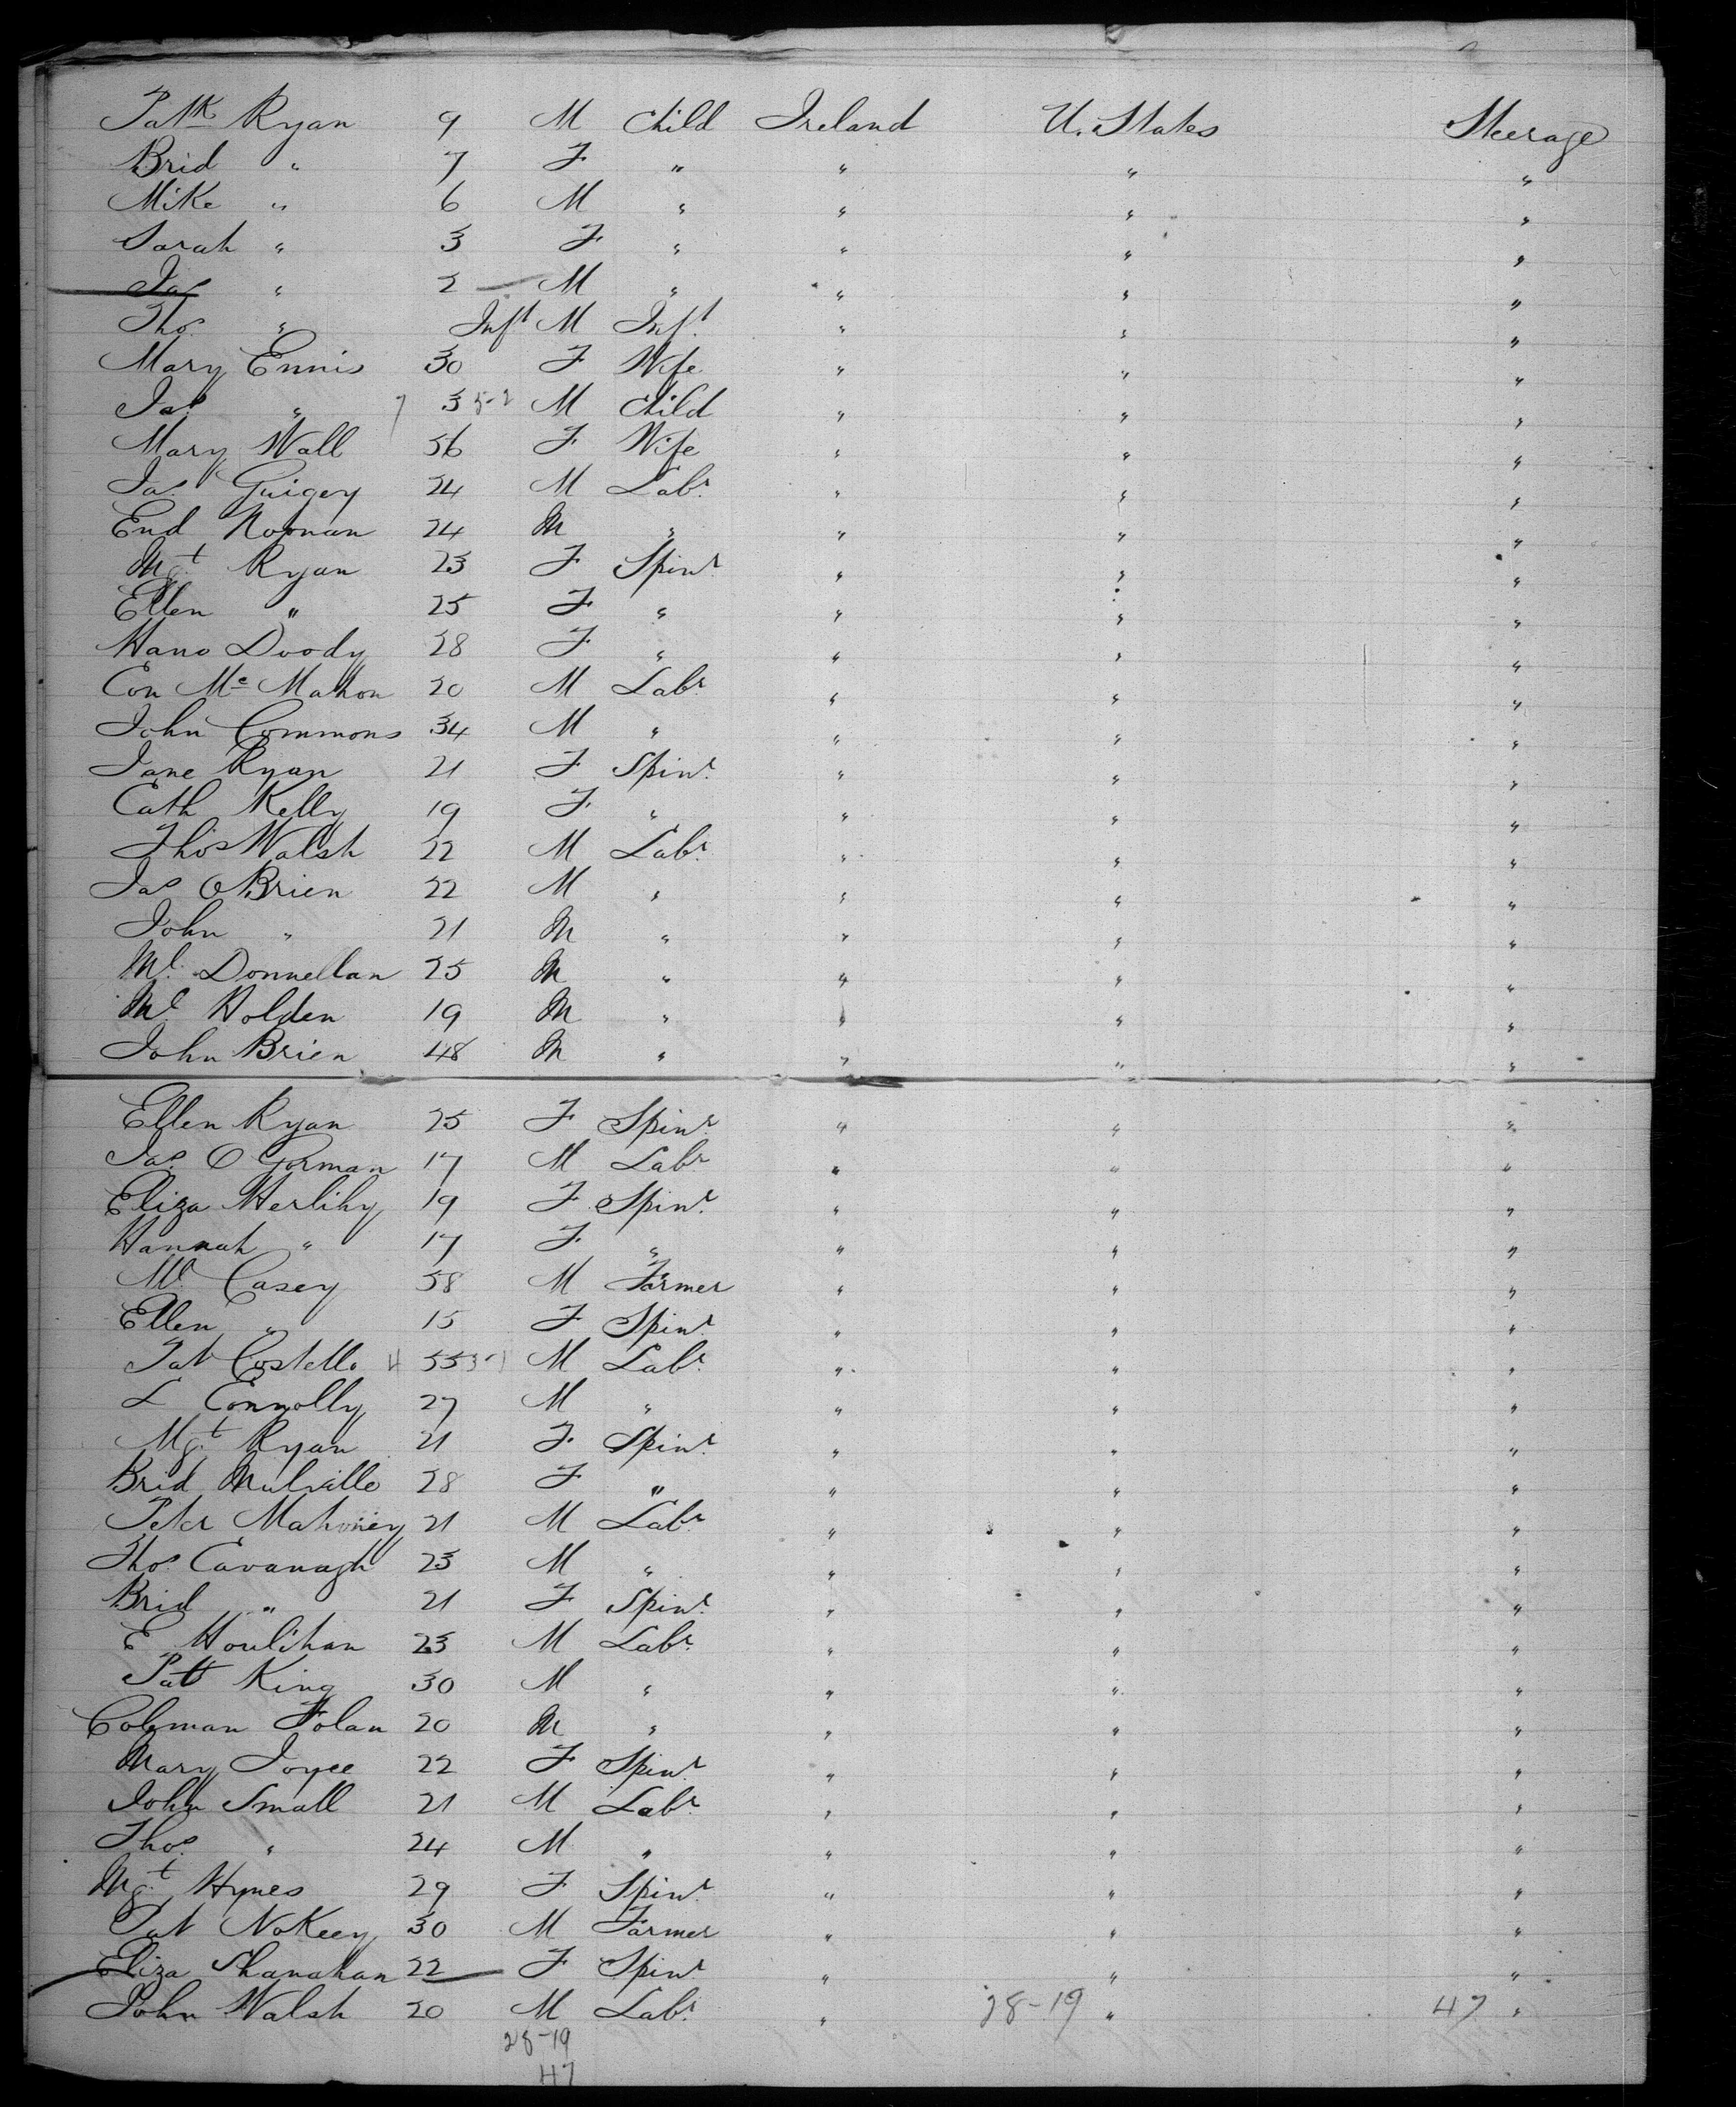 Patk Ryan 9 M Child Ireland U. States Steerage
Brid " 7 F " " " "
Mike " 6 M " " " "
Sarah " 3 F " " " "
Jas " 2 M " " " "
Thos " Inft M Inft " " "
Mary Ennis 30 F Wife " " "
Jas. " 3 M Child " " "
Mary Wall 56 F Wife " " "
Jas. Guigey 24 M Labr. " " "
End Noonan 24 M " " " "
Mgt Ryan 23 F Spinr. " " "
Ellen " 25 F " " " "
Hano Doody 28 F " " " "
Con Mc Mahon 20 M Labr. " " "
John Commons 34 M " " " "
Jane Ryan 21 F Spinr. " " "
Cath Kelly 19 F " " " "
Thos Walsh 22 M Labr. " " "
Jas O Brien 22 M " " " "
John " 21 M " " " "
Ml. Donnellan 25 M " " " "
Ml Holden 19 M " " " "
John Brien 48 M " " " "
Ellen Ryan 25 F Spinr. " " "
Jas. O Gorman 17 M Labr " " "
Eliza Herlihy 19 F Spinr. " " "
Hannah " 17 F " " " "
Ml. Casey 58 M Farmer " " "
Ellen " 15 F Spinr. " " "
Pat Costello 55 M Labr. " " "
L Connolly 27 M " " " "
Mgt. Ryan 21 F Spinr. " " "
Brid Mulville 28 F " " " "
Peter Mahoney 21 M Labr. " " "
Thos. Cavanagh 23 M " " " "
Brid " 21 F Spinr. " " "
E Houlihan 23 M Labr. " " "
Patt King 30 M " " " "
Coleman Folan 20 M " " " "
Mary Joyce 22 F Spinr. " " "
John Small 21 M Labr. " " "
Thos. " 24 M " " " "
Mgt. Hynes 29 F Spinr. " " "
Pat NoKeey 30 M Farmer " " "
Eliza Shanahan 22 F Spinr " " "
John Walsh 20 M Labr. " 28-19 " 47 "
28-19
47